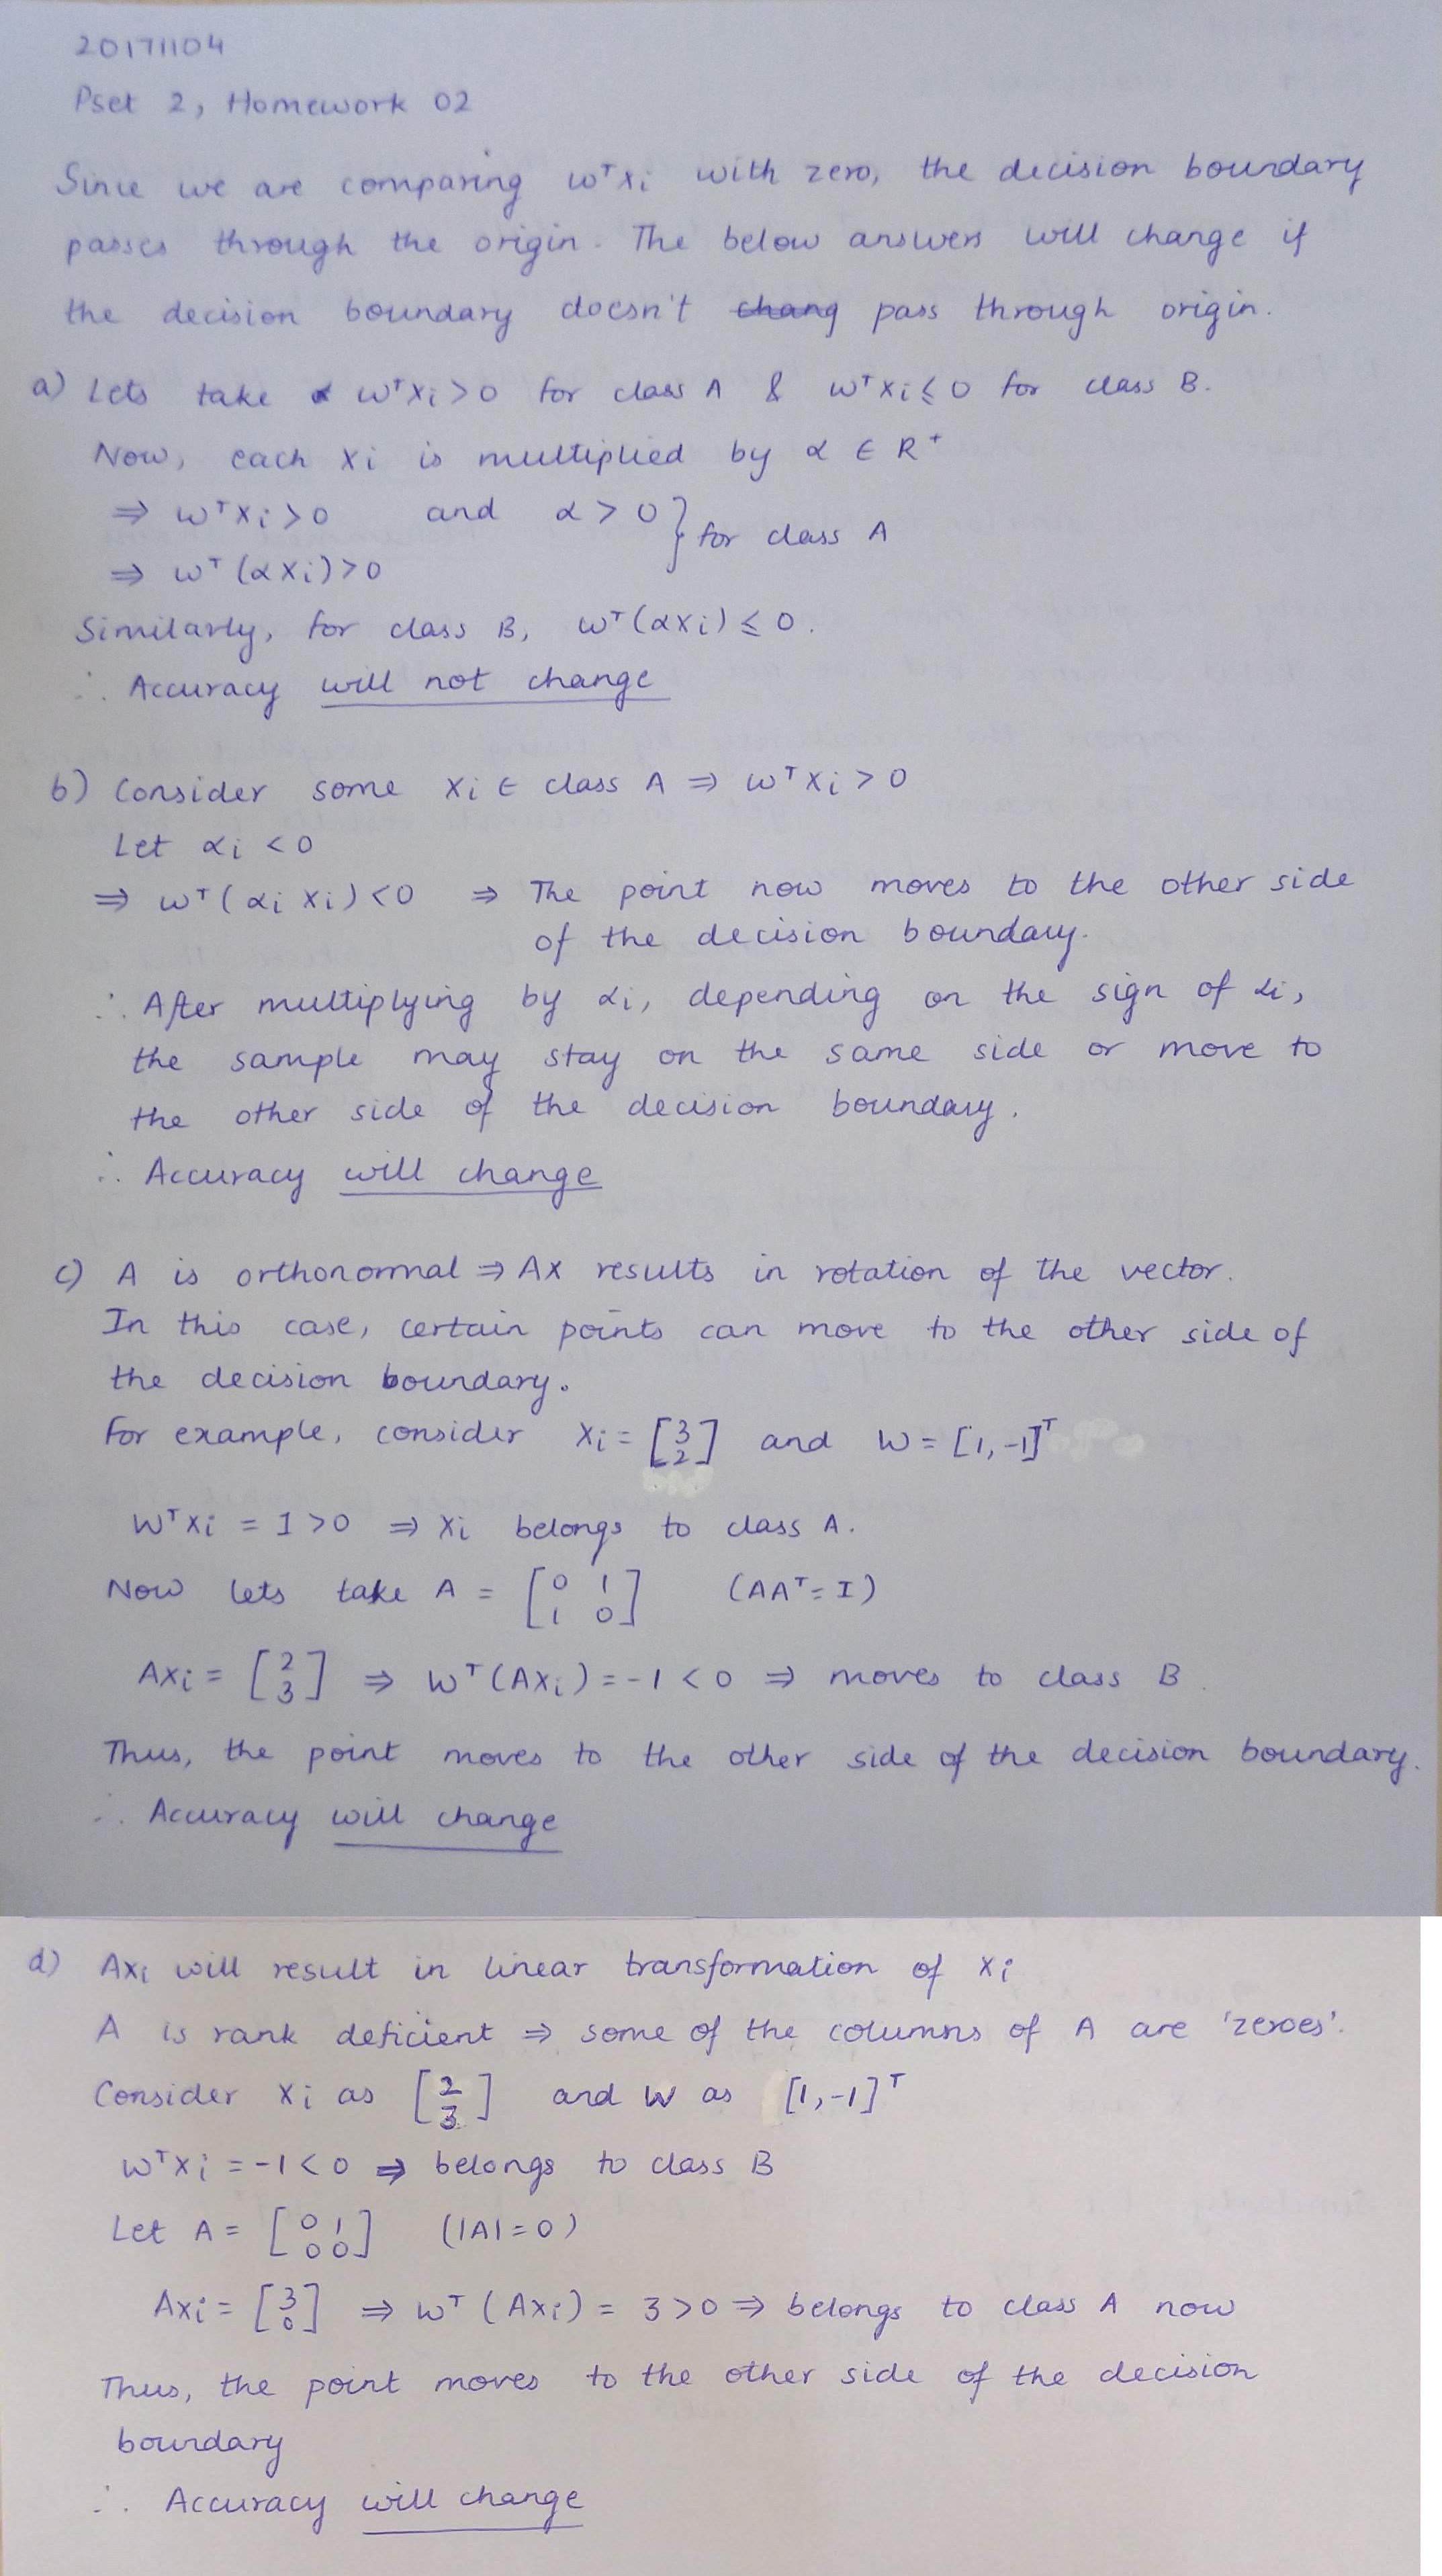 20171104
Pset 2, Homework 02
Since we are comparing wᵀxᵢ with zero, the decision boundary
passes through the origin. The below answers will change if
the decision boundary doesn't chang pass through origin.
a) Lets take wᵀxᵢ > 0 for class A & wᵀxᵢ ≤ 0 for class B.
Now, each xᵢ is multiplied by α ∈ R⁺
⇒ wᵀxᵢ > 0 and α > 0 } for class A
⇒ wᵀ(αxᵢ) > 0
Similarly, for class B, wᵀ(αxᵢ) ≤ 0.
∴ Accuracy will not change
b) Consider some xᵢ ∈ class A ⇒ wᵀxᵢ > 0
Let αᵢ < 0
⇒ wᵀ(αᵢ xᵢ) < 0 ⇒ The point now moves to the other side
of the decision boundary.
∴ After multiplying by αᵢ, depending on the sign of αᵢ,
the sample may stay on the same side or move to
the other side of the decision boundary.
∴ Accuracy will change
c) A is orthonormal ⇒ Ax results in rotation of the vector.
In this case, certain points can move to the other side of
the decision boundary.
For example, consider xᵢ = [3 2] and W = [1, -1]ᵀ
Wᵀxᵢ = 1 > 0 ⇒ xᵢ belongs to class A.
Now lets take A = [0 1 1 0] (AAᵀ = I)
Axᵢ = [2 3] ⇒ Wᵀ(Axᵢ) = -1 < 0 ⇒ moves to class B.
Thus, the point moves to the other side of the decision boundary.
∴ Accuracy will change
d) Axᵢ will result in linear transformation of xᵢ
A is rank deficient ⇒ some of the columns of A are 'zeroes'.
Consider xᵢ as [2 3] and W as [1, -1]ᵀ
wᵀxᵢ = -1 < 0 ⇒ belongs to class B
Let A = [0 1 0 0] (|A| = 0)
Axᵢ = [3 0] ⇒ wᵀ(Axᵢ) = 3 > 0 ⇒ belongs to class A now
Thus, the point moves to the other side of the decision
boundary
∴ Accuracy will change